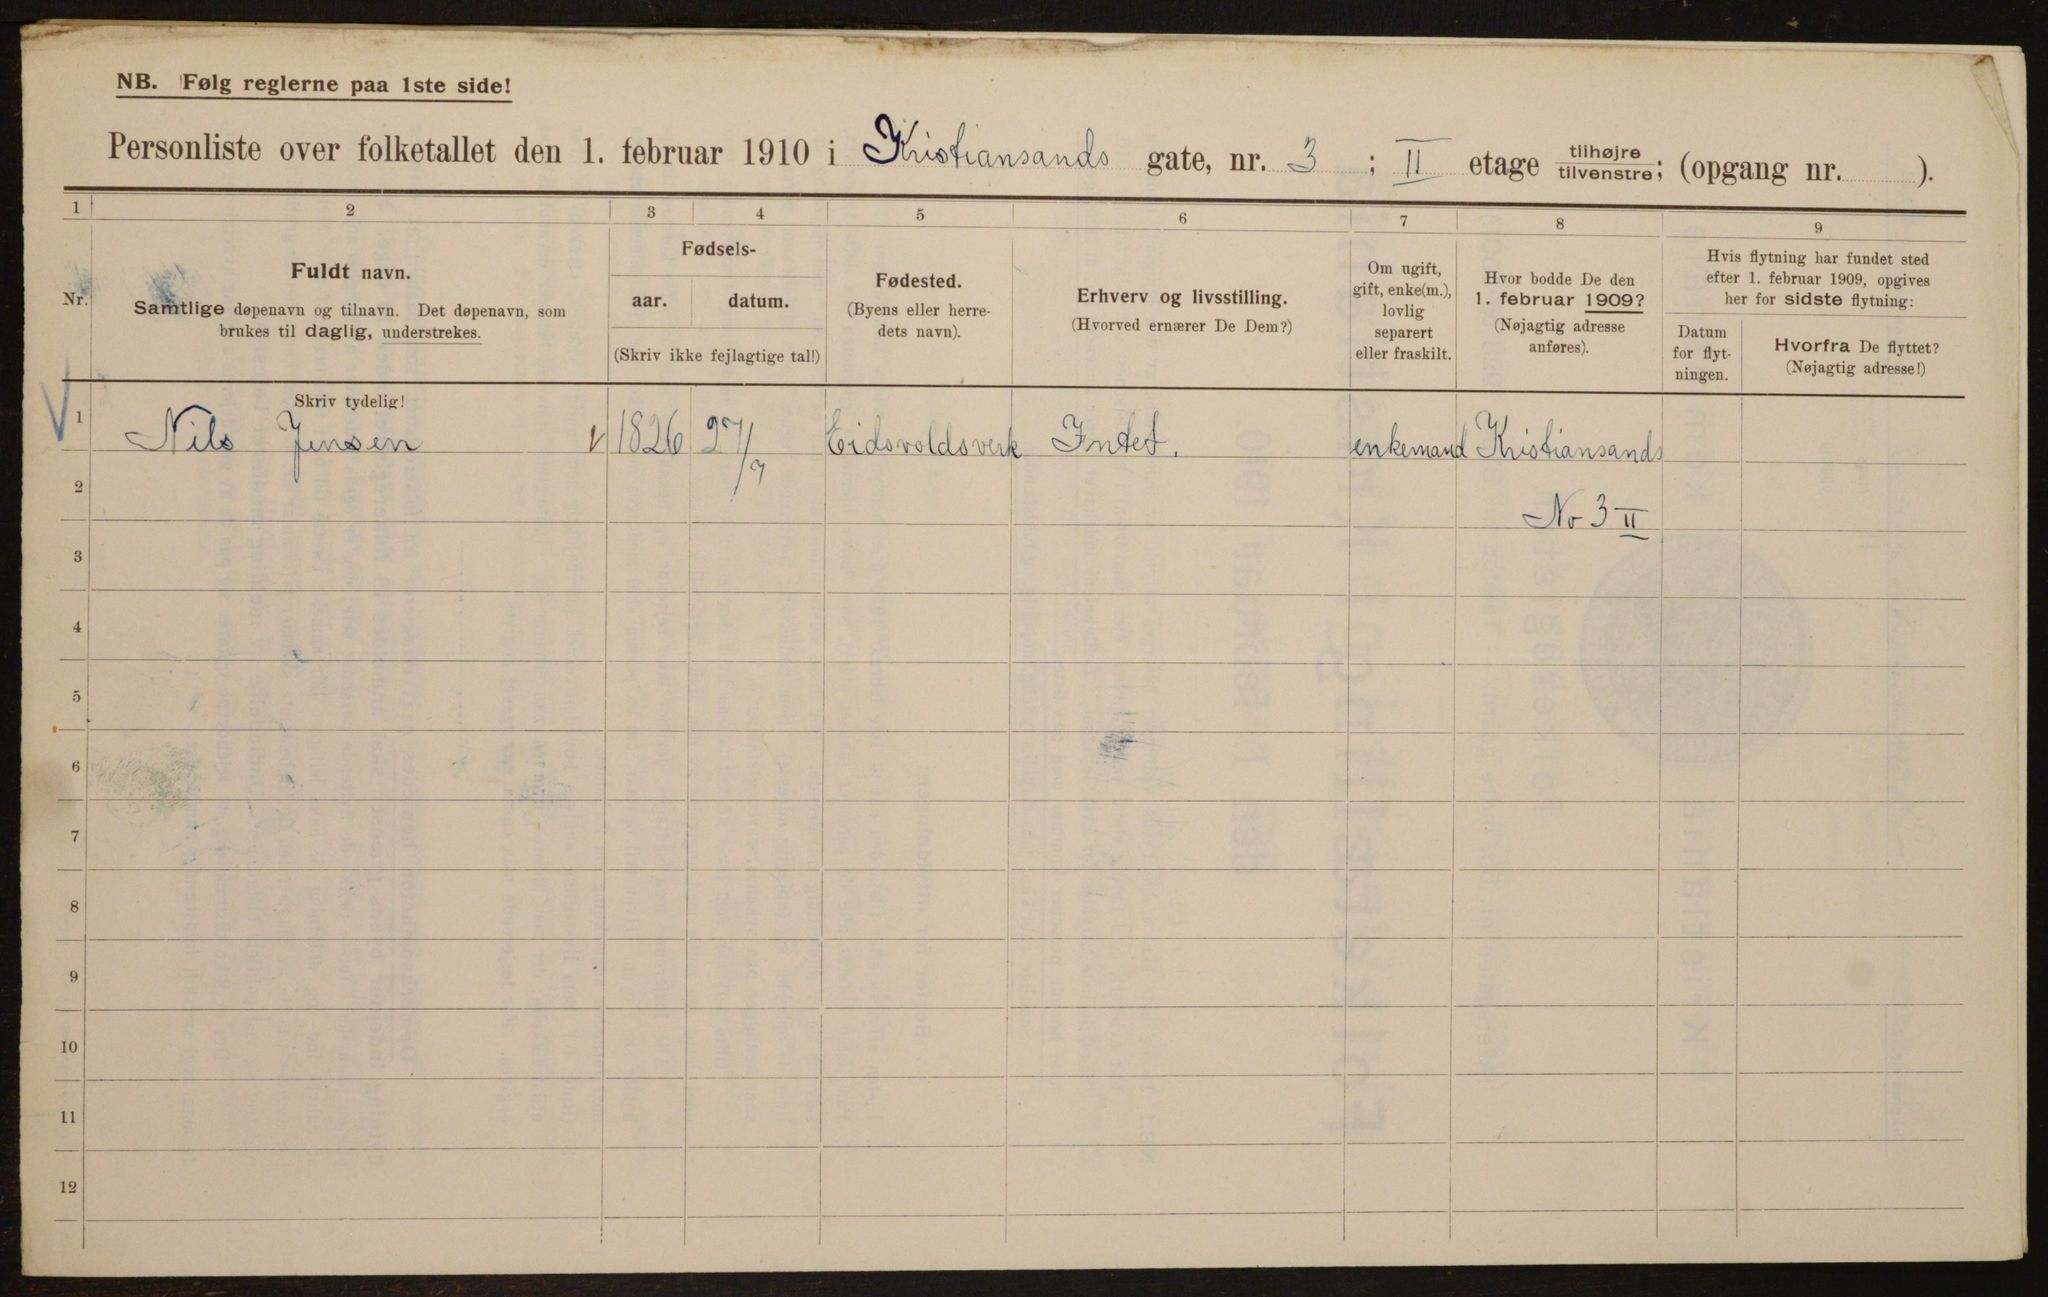 NB. Følg reglerne paa 1ste side!
Personliste over folketallet den 1. februar 1910 i Kristiansands gate, nr. 3 ; II etage tilhøjre tilvenstre; (opgang nr. ).
1 2 3 4 5 6 7 8 9
Nr.
Fuldt navn.
Samtlige døpenavn og tilnavn. Det døpenavn, som
brukes til daglig, understrekes.
Skriv tydelig!
Fødsels-
aar. datum.
(Skriv ikke fejlagtige tal!)
Fødested.
(Byens eller herre-
dets navn).
Erhverv og livsstilling.
(Hvorved ernærer De Dem?)
Om ugift,
gift, enke(m.),
lovlig
separert
eller fraskilt.
Hvor bodde De den
1. februar 1909?
(Nøjagtig adresse
anføres).
Hvis flytning har fundet sted
efter 1. februar 1909, opgives
her for sidste flytning:
Datum
for flyt-
ningen.
Hvorfra De flyttet?
(Nøjagtig adresse!)
1 Nils Jensen 1826 27/7 Eidsvoldsverk Intet. enkemand Kristiansands
2 No 3 II
3
4
5
6
7
8
9
10
11
12